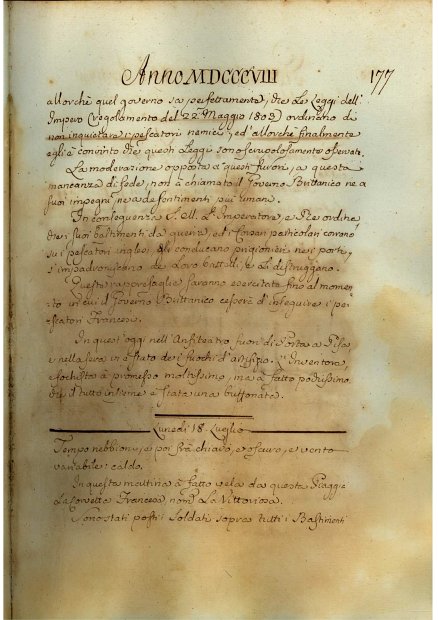 Anno MDCCCVIII 177
allorchè quel governo sa perfettamente, che Le Leggi dell'
Impero (regolamento del 22 Maggio 1803) ordinano di
non inquietare i pescatori nemici, ed allorchè finalmente
egli è convinto che questi Leggi sono scrupolosamente osservate.
La moderazione opposta a questi furori, a questa
mancanza di fede, non à chiamato il Governo Brittanico ne a
suoi impegni, ne a de sentimenti più umani.
In conseguenza S. M. L'Imperatore, e Re ordina
che i suoi bastimenti da guerra, ed i Corsari particolari corrono
su i pescatori inglesi, gli conducano prigionieri nei porti,
s'impadroniscano de Loro battelli, e Le distruggano.
Queste rappresaglie saranno esercitate fino al momen-
to in cui il Governo Brittanico cesserà d'inseguire i pe-
scatori Francesi.
In quest'oggi nell'Anfiteatro fuori di Porta a Pisa
e nella sera vi è stato de i fuochi d'artifizio. L'Inventore,
e fochista à promesso moltissimo, ma à fatto pochissimo
il tutto insieme è stata una buffonata.
Lunedì 18. Luglio
Tempo nebbioso, e poi frà chiaro, e oscuro, e vento
variabile: caldo.
In questa mattina à fatto vela da questa Piaggia
La Corvetta Francese, nom. La Vittoriosa.
Sono stati posti i Soldati sopra tutti i Bastimenti